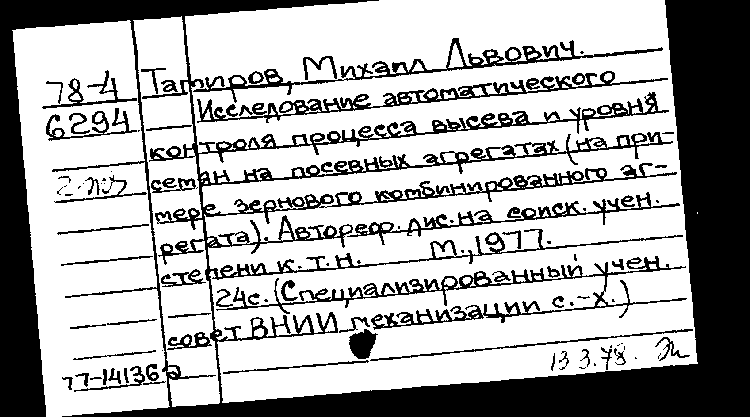 78-4 Тагиров, Михаил Львович.
6294 Исследование автоматического
контроля процесса высева и уровня
семян на посевных агрегатах (на при-
мере зернового комбинированного аг-
регата). Автореф. дис. на соиск. учен.
степени к.т.н. М., 1977.
24с. (Специализированный учен.
совет ВНИИ механизации с.-х.)
77-14136
13 3.78.